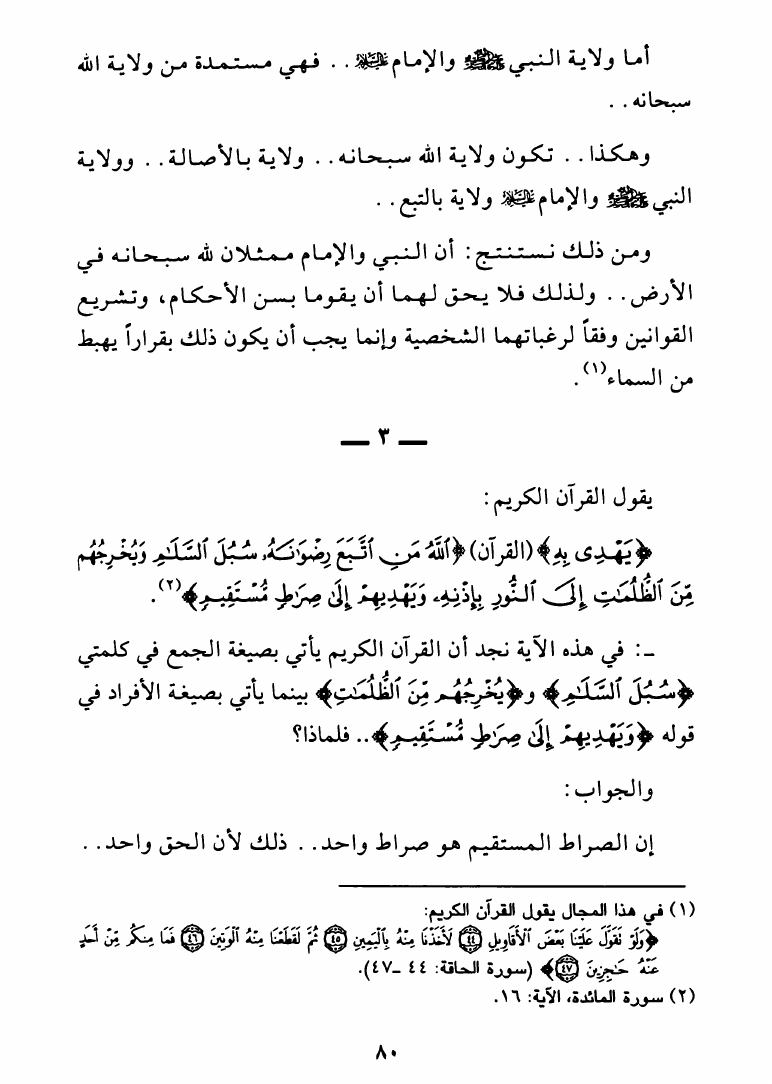 أما ولاية النبي ﷺ والإمام عليه السلام . . فهي مستمدة من ولاية الله
سبحانه . .
وهكذا . . تكون ولاية الله سبحانه . . ولاية بالأصالة . . وولاية
النبي ﷺ والإمام عليه السلام ولاية بالتبع . .
ومن ذلك نستنتج : أن النبي والإمام ممثلان لله سبحانه في
الأرض . . ولذلك فلا يحق لهما أن يقوما بسن الأحكام، وتشريع
القوانين وفقاً لرغباتهما الشخصية وإنما يجب أن يكون ذلك بقراراً يهبط
من السماء(١).
— ٣ —
يقول القرآن الكريم :
﴿يَهْدِى بِهِ﴾ (القرآن) ﴿ٱللَّهُ مَنِ ٱتَّبَعَ رِضْوَانَهُۥ سُبُلَ ٱلسَّلَٰمِ وَيُخْرِجُهُم
مِّنَ ٱلظُّلُمَٰتِ إِلَى ٱلنُّورِ بِإِذْنِهِۦ وَيَهْدِيهِمْ إِلَىٰ صِرَٰطٍ مُّسْتَقِيمٍ﴾(٢).
ـ : في هذه الآية نجد أن القرآن الكريم يأتي بصيغة الجمع في كلمتي
﴿سُبُلَ ٱلسَّلَٰمِ﴾ و﴿يُخْرِجُهُم مِّنَ ٱلظُّلُمَٰتِ﴾ بينما يأتي بصيغة الأفراد في
قوله ﴿وَيَهْدِيهِمْ إِلَىٰ صِرَٰطٍ مُّسْتَقِيمٍ﴾.. فلماذا؟
والجواب :
إن الصراط المستقيم هو صراط واحد. . ذلك لأن الحق واحد. .
(١) في هذا المجال يقول القرآن الكريم:
﴿وَلَوْ تَقَوَّلَ عَلَيْنَا بَعْضَ ٱلْأَقَاوِيلِ ٤٤ لَأَخَذْنَا مِنْهُ بِٱلْيَمِينِ ٤٥ ثُمَّ لَقَطَعْنَا مِنْهُ ٱلْوَتِينَ ٤٦ فَمَا مِنكُم مِّنْ أَحَدٍ
عَنْهُ حَٰجِزِينَ ٤٧﴾ (سورة الحاقة: ٤٤ ـ٤٧).
(٢) سورة المائدة، الآية: ١٦.
٨٠